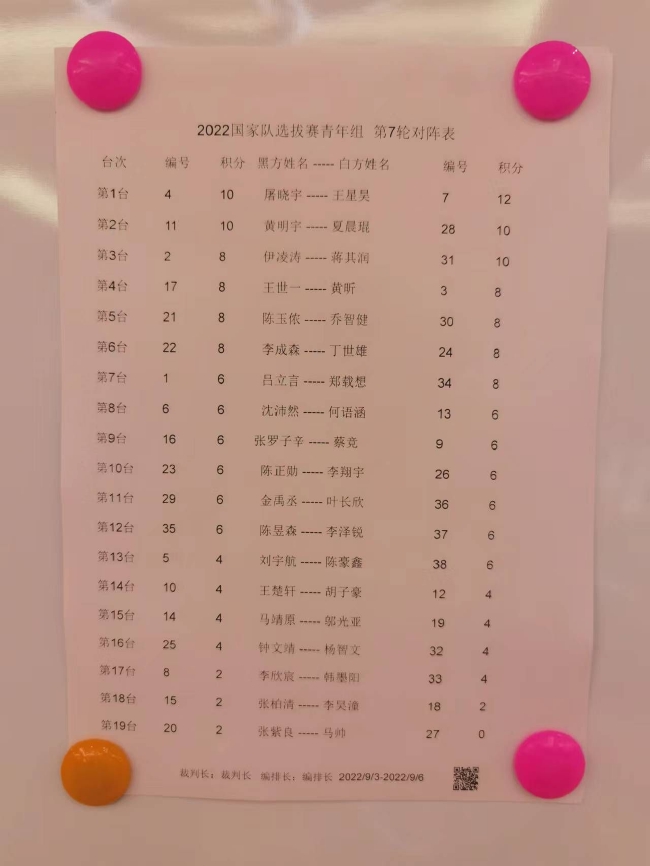 2022国家队选拔赛青年组 第7轮对阵表
台次 编号 积分 黑方姓名 ----- 白方姓名 编号 积分
第1台 4 10 屠晓宇 ----- 王星昊 7 12
第2台 11 10 黄明宇 ----- 夏晨琨 28 10
第3台 2 8 伊凌涛 ----- 蒋其润 31 10
第4台 17 8 王世一 ----- 黄昕 3 8
第5台 21 8 陈玉侬 ----- 乔智健 30 8
第6台 22 8 李成森 ----- 丁世雄 24 8
第7台 1 6 吕立言 ----- 郑载想 34 8
第8台 6 6 沈沛然 ----- 何语涵 13 6
第9台 16 6 张罗子辛 ----- 蔡竞 9 6
第10台 23 6 陈正勋 ----- 李翔宇 26 6
第11台 29 6 金禹丞 ----- 叶长欣 36 6
第12台 35 6 陈昱森 ----- 李泽锐 37 6
第13台 5 4 刘宇航 ----- 陈豪鑫 38 6
第14台 10 4 王楚轩 ----- 胡子豪 12 4
第15台 14 4 马靖原 ----- 邬光亚 19 4
第16台 25 4 钟文靖 ----- 杨智文 32 4
第17台 8 2 李欣宸 ----- 韩墨阳 33 4
第18台 15 2 张柏清 ----- 李昊潼 18 2
第19台 20 2 张紫良 ----- 马帅 27 0
裁判长：裁判长 编排长：编排长 2022/9/3-2022/9/6